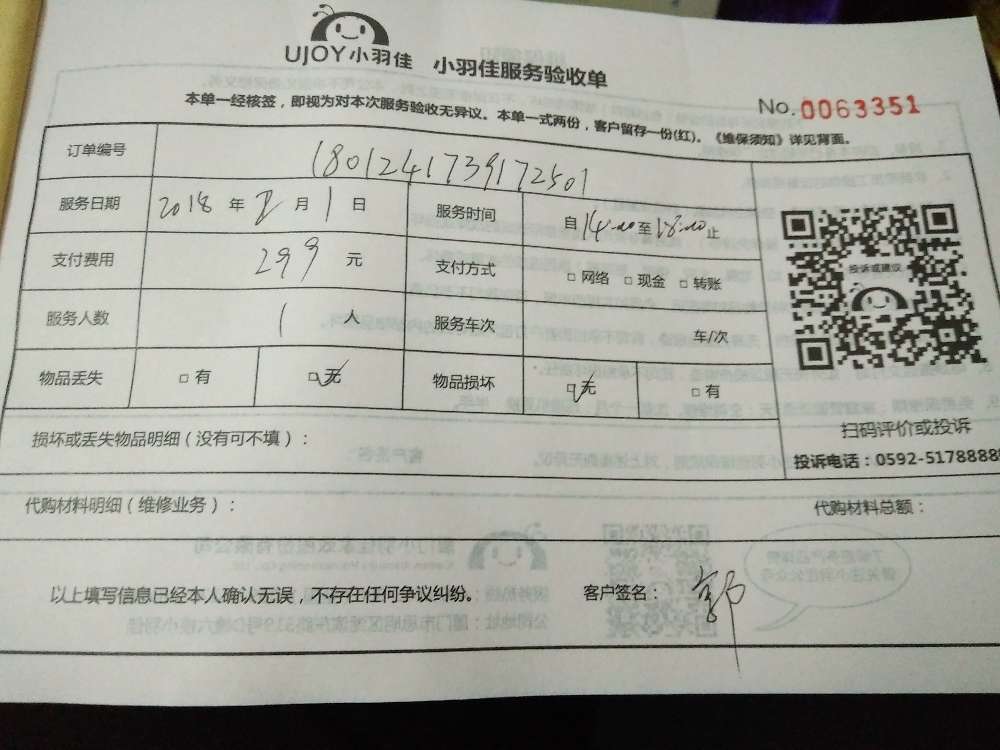 UJOY小羽佳 小羽佳服务验收单
No. 0063351
本单一经核签，即视为对本次服务验收无异议。本单一式两份，客户留存一份(红)。《维保须知》详见背面。
订单编号 1801241739172501
服务日期 2018 年 2 月 1 日 服务时间 自 14:00 至 18:00 止
支付费用 299 元 支付方式 □ 网络 □ 现金 □ 转账
服务人数 1 人 服务车次 车/次
物品丢失 □ 有 □ 无 物品损坏 □ 无 □ 有
投诉或建议
扫码评价或投诉
投诉电话：0592-5178888
损坏或丢失物品明细（没有可不填）：
代购材料明细（维修业务）： 代购材料总额：
以上填写信息已经本人确认无误，不存在任何争议纠纷。 客户签名：郭